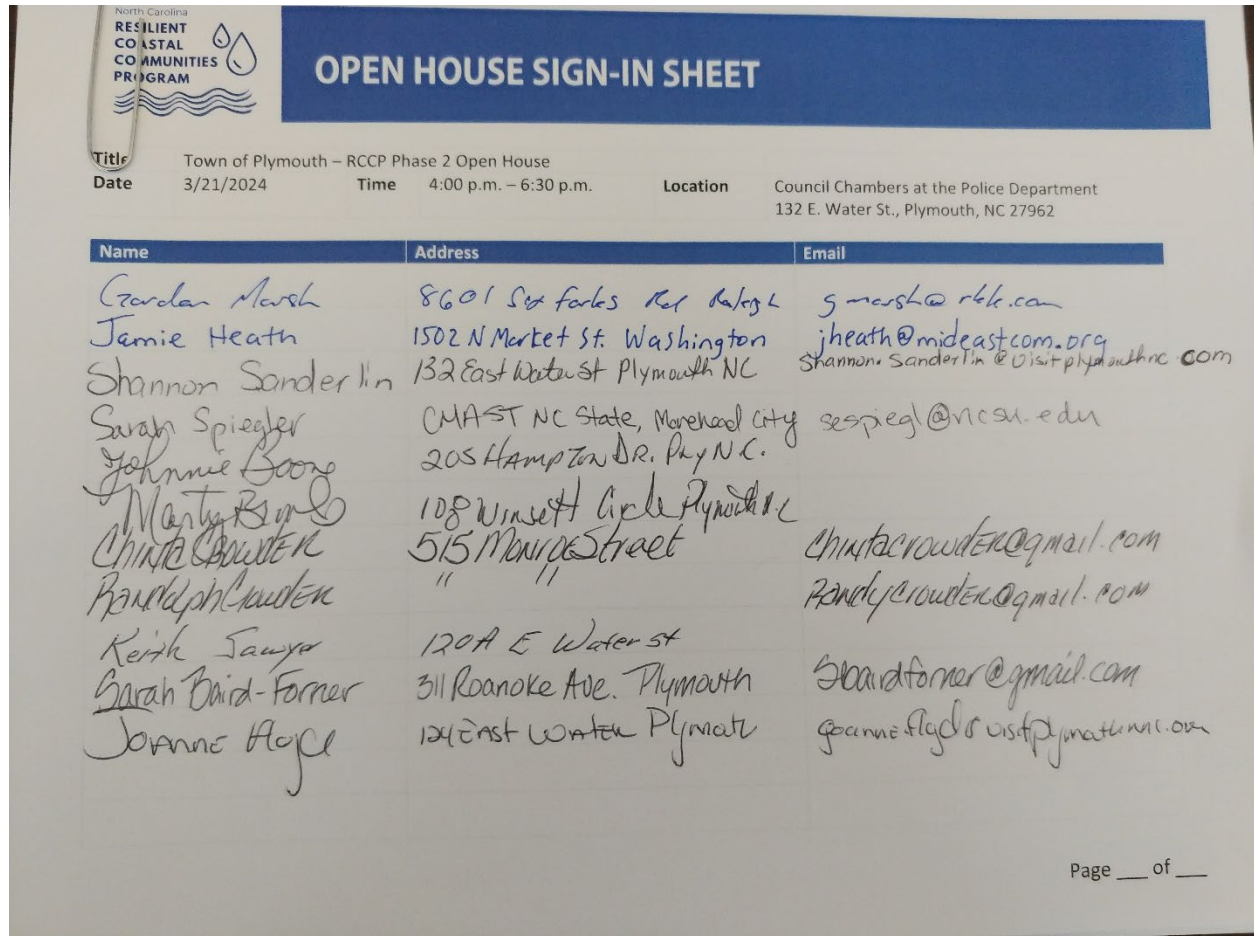 North Carolina
RESILIENT
COASTAL
COMMUNITIES
PROGRAM
OPEN HOUSE SIGN-IN SHEET
Title Town of Plymouth – RCCP Phase 2 Open House
Date 3/21/2024 Time 4:00 p.m. – 6:30 p.m. Location Council Chambers at the Police Department
132 E. Water St., Plymouth, NC 27962
Name Address Email
Marsh 8601 Six Forks Rd Raleigh gmarsh@rkk.com
Jamie Heath 1502 N Market St. Washington jheath@mideastcom.org
Shannon Sanderlin 132 East Water St Plymouth NC Shannon.Sanderlin@visitplymouthnc.com
Sarah Spiegler CMAST NC State, Morehead City sespiegl@ncsu.edu
Johnnie Boone 205 HAMPTON DR. Ply N.C.
Marty 108 Winsett Circle Plymouth N.C
CHINTA CROWDER 515 Monroe Street chintacrowder@gmail.com
Randolph Crowder " " Randycrowder@gmail.com
Keith Sawyer 120A E Water st
Sarah Baird-Forner 311 Roanoke Ave. Plymouth Sbairdforner@gmail.com
Joanne 124 East Water
Page ___ of ___